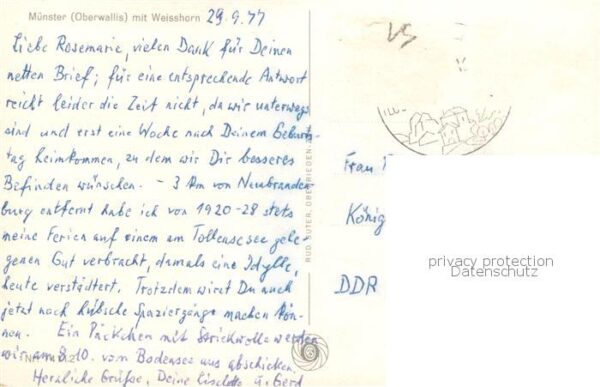 Münster (Oberwallis) mit Weisshorn
29.9.77
Liebe Rosemarie, vielen Dank für Deinen
netten Brief; für eine entsprechende Antwort
reicht leider die Zeit nicht, da wir unterwegs
sind und erst eine Woche nach Deinem Geburts-
tag heimkommen, zu dem wir Dir besseres
Befinden wünschen. – 3 km von Neubranden-
burg entfernt habe ich von 1920-28 stets
meine Ferien auf einem am Tollensesee gele-
genen Gut verbracht, damals eine Idylle,
heute verstädtert. Trotzdem wirst Du auch
jetzt noch hübsche Spaziergänge machen kön-
nen. Ein Päckchen mit Strickwolle werden
wir am 8.10. vom Bodensee aus abschicken.
Herzliche Grüße, Deine Liselotte u. Gerd
RUD. SUTER, OBERRIEDEN
Frau
König
DDR
privacy protection
Datenschutz